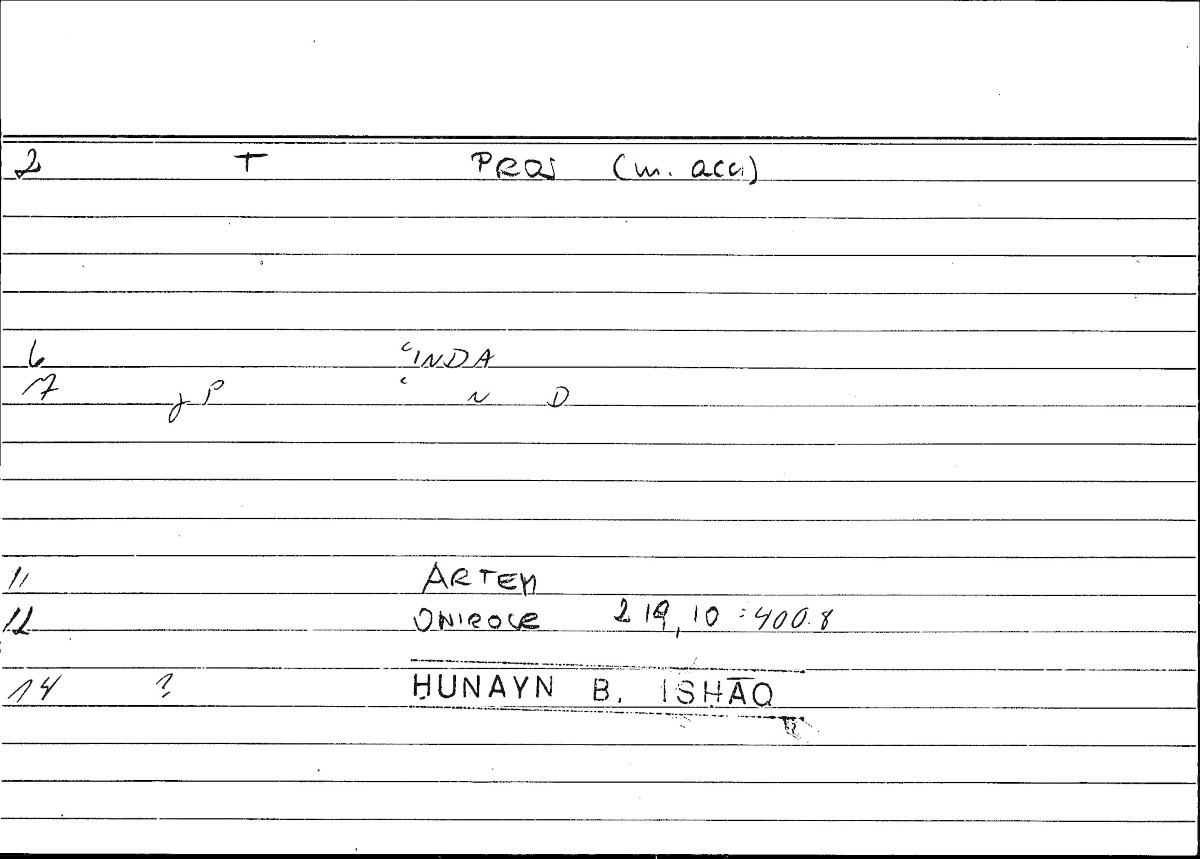 2 T PROS (m. acc)
6 ʿINDA
7 gP ʿ N D
11 ARTEM
12 ONIROCR 219,10 : 400.8
14 ? ḤUNAYN B. ISḤĀQ